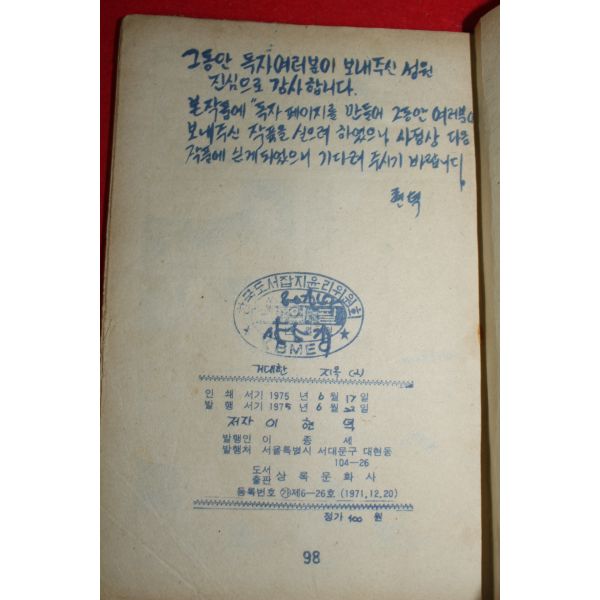 그동안 독자여러분이 보내주신 성원
진심으로 감사합니다.
본 작품에 "독자 페이지를 만들어 그동안 여러분이
보내주신 작품을 실으려 하였으나 사정상 다음
작품에 싣게 되었으니 기다려 주시기 바랍니다.
현석
한국도서잡지윤리위원회
BMEC
거대한 지옥
인 쇄 서기 1975 년 6 월 17 일
발 행 서기 1975 년 6 월 22 일
저자 이 현 석
발행인 이 종 세
발행처 서울특별시 서대문구 대현동
104-26
도서출판 상록문화사
등록번호 ㉮제6-26호 (1971.12.20)
정가 100 원
98